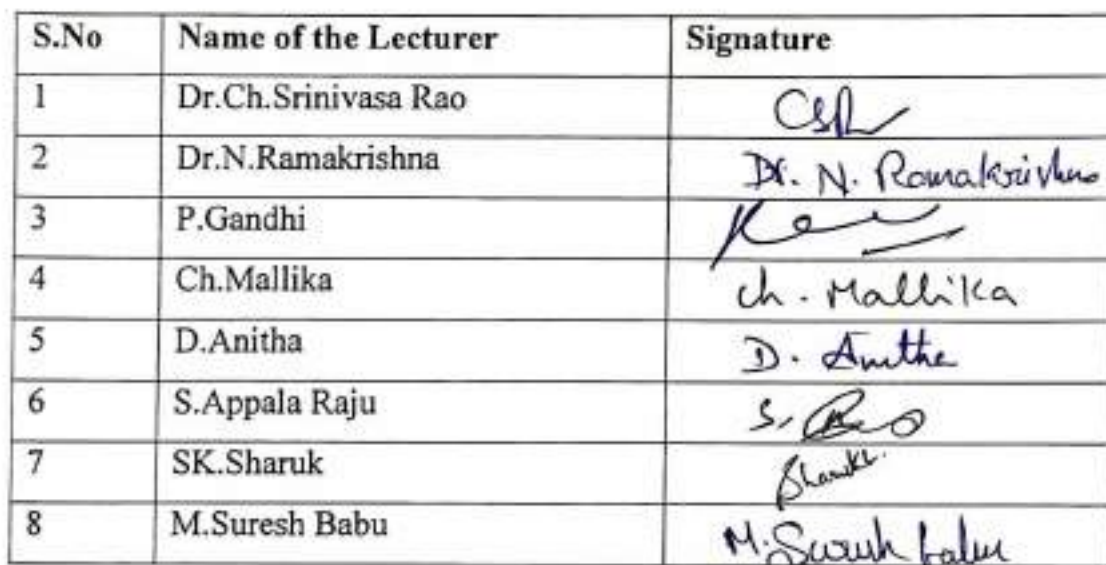 S.No Name of the Lecturer Signature
1 Dr.Ch.Srinivasa Rao CSR
2 Dr.N.Ramakrishna Dr. N. Ramakrishna
3 P.Gandhi
4 Ch.Mallika Ch. Mallika
5 D.Anitha D. Anitha
6 S.Appala Raju S.
7 SK.Sharuk Sharukh.
8 M.Suresh Babu M. Suresh babu